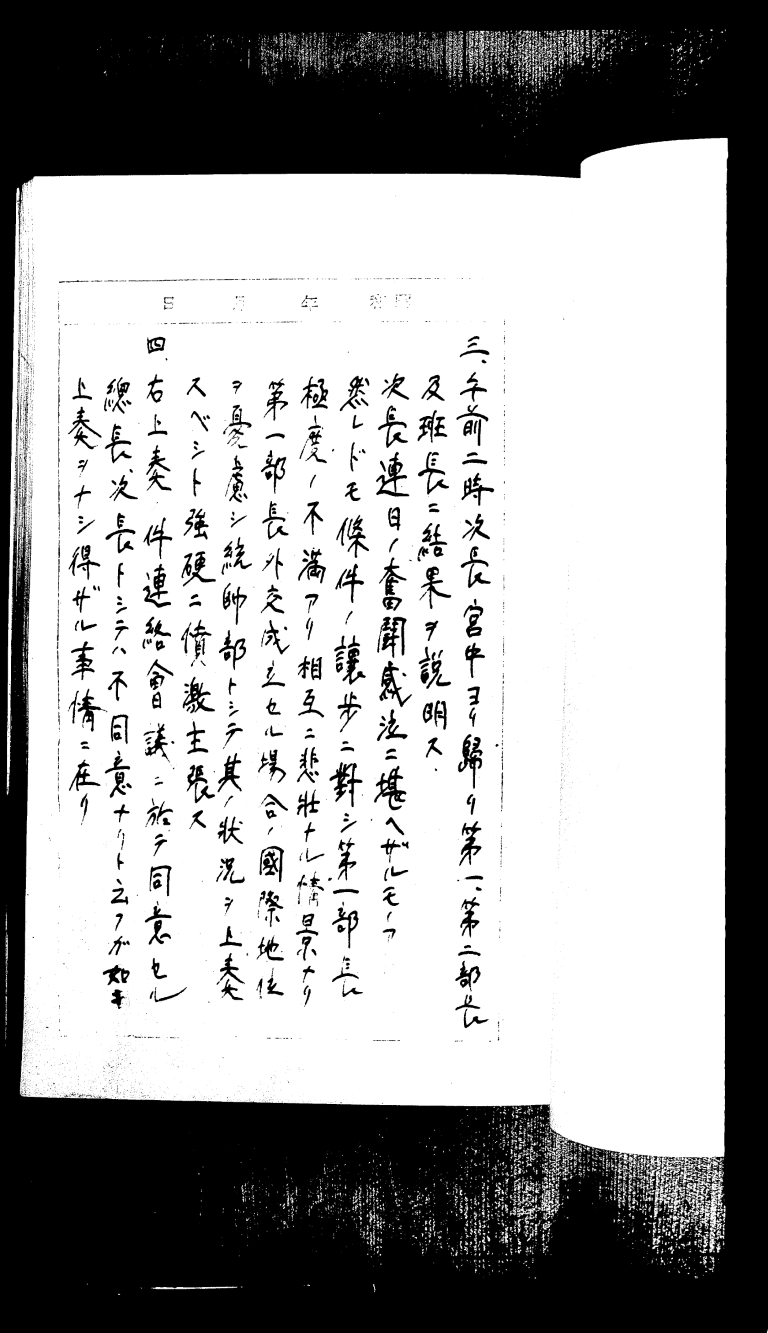 昭和 年 月 日
三、午前二時次長宮中ヨリ歸リ第一、第二部長
及班長ニ結果ヲ説明ス、
次長連日ノ奮鬪感泣ニ堪ヘザルモノアリ
然レドモ條件ノ讓歩ニ對シ第一部長
極度ノ不滿アリ相互ニ悲壯ナル情景ナリ
第一部長外交成立セル場合ノ國際地位
ヲ憂慮シ統帥部トシテ其ノ狀況ヲ上奏
スベシト強硬ニ憤激主張ス
四、右上奏ノ件連絡會議ニ於テ同意セル
總長、次長トシテハ不同意ナリト云フガ如キ
上奏ヲナシ得ザル事情ニ在リ